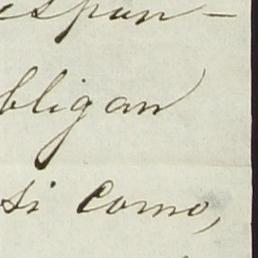 espon-
obligan
si como,